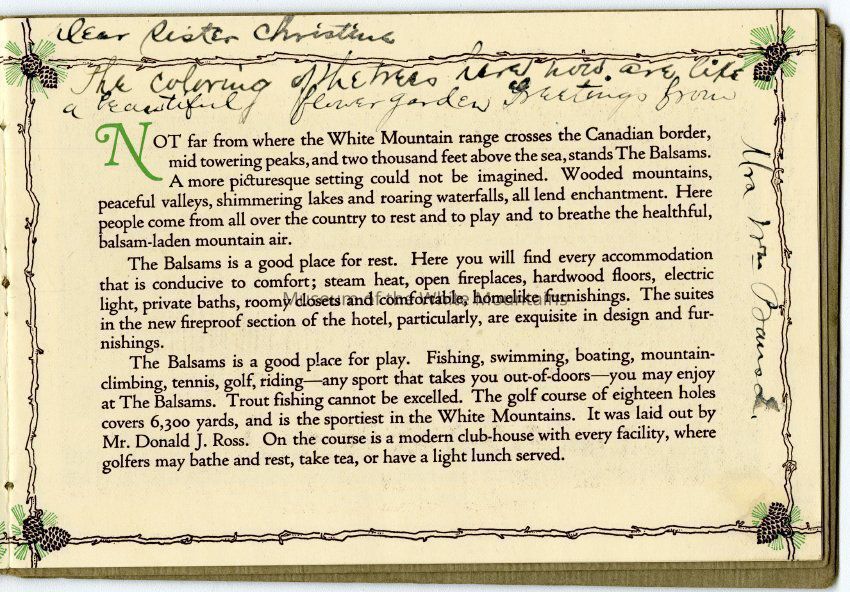 Dear Sister Christine
The coloring of the trees here now are like
a beautiful flower garden Greetings from
Mrs Wm
NOT far from where the White Mountain range crosses the Canadian border,
mid towering peaks, and two thousand feet above the sea, stands The Balsams.
A more picturesque setting could not be imagined. Wooded mountains,
peaceful valleys, shimmering lakes and roaring waterfalls, all lend enchantment. Here
people come from all over the country to rest and to play and to breathe the healthful,
balsam-laden mountain air.
The Balsams is a good place for rest. Here you will find every accommodation
that is conducive to comfort; steam heat, open fireplaces, hardwood floors, electric
light, private baths, roomy closets and comfortable, homelike furnishings. The suites
Museum of the White Mountains
in the new fireproof section of the hotel, particularly, are exquisite in design and fur-
nishings.
The Balsams is a good place for play. Fishing, swimming, boating, mountain-
climbing, tennis, golf, riding—any sport that takes you out-of-doors—you may enjoy
at The Balsams. Trout fishing cannot be excelled. The golf course of eighteen holes
covers 6,300 yards, and is the sportiest in the White Mountains. It was laid out by
Mr. Donald J. Ross. On the course is a modern club-house with every facility, where
golfers may bathe and rest, take tea, or have a light lunch served.